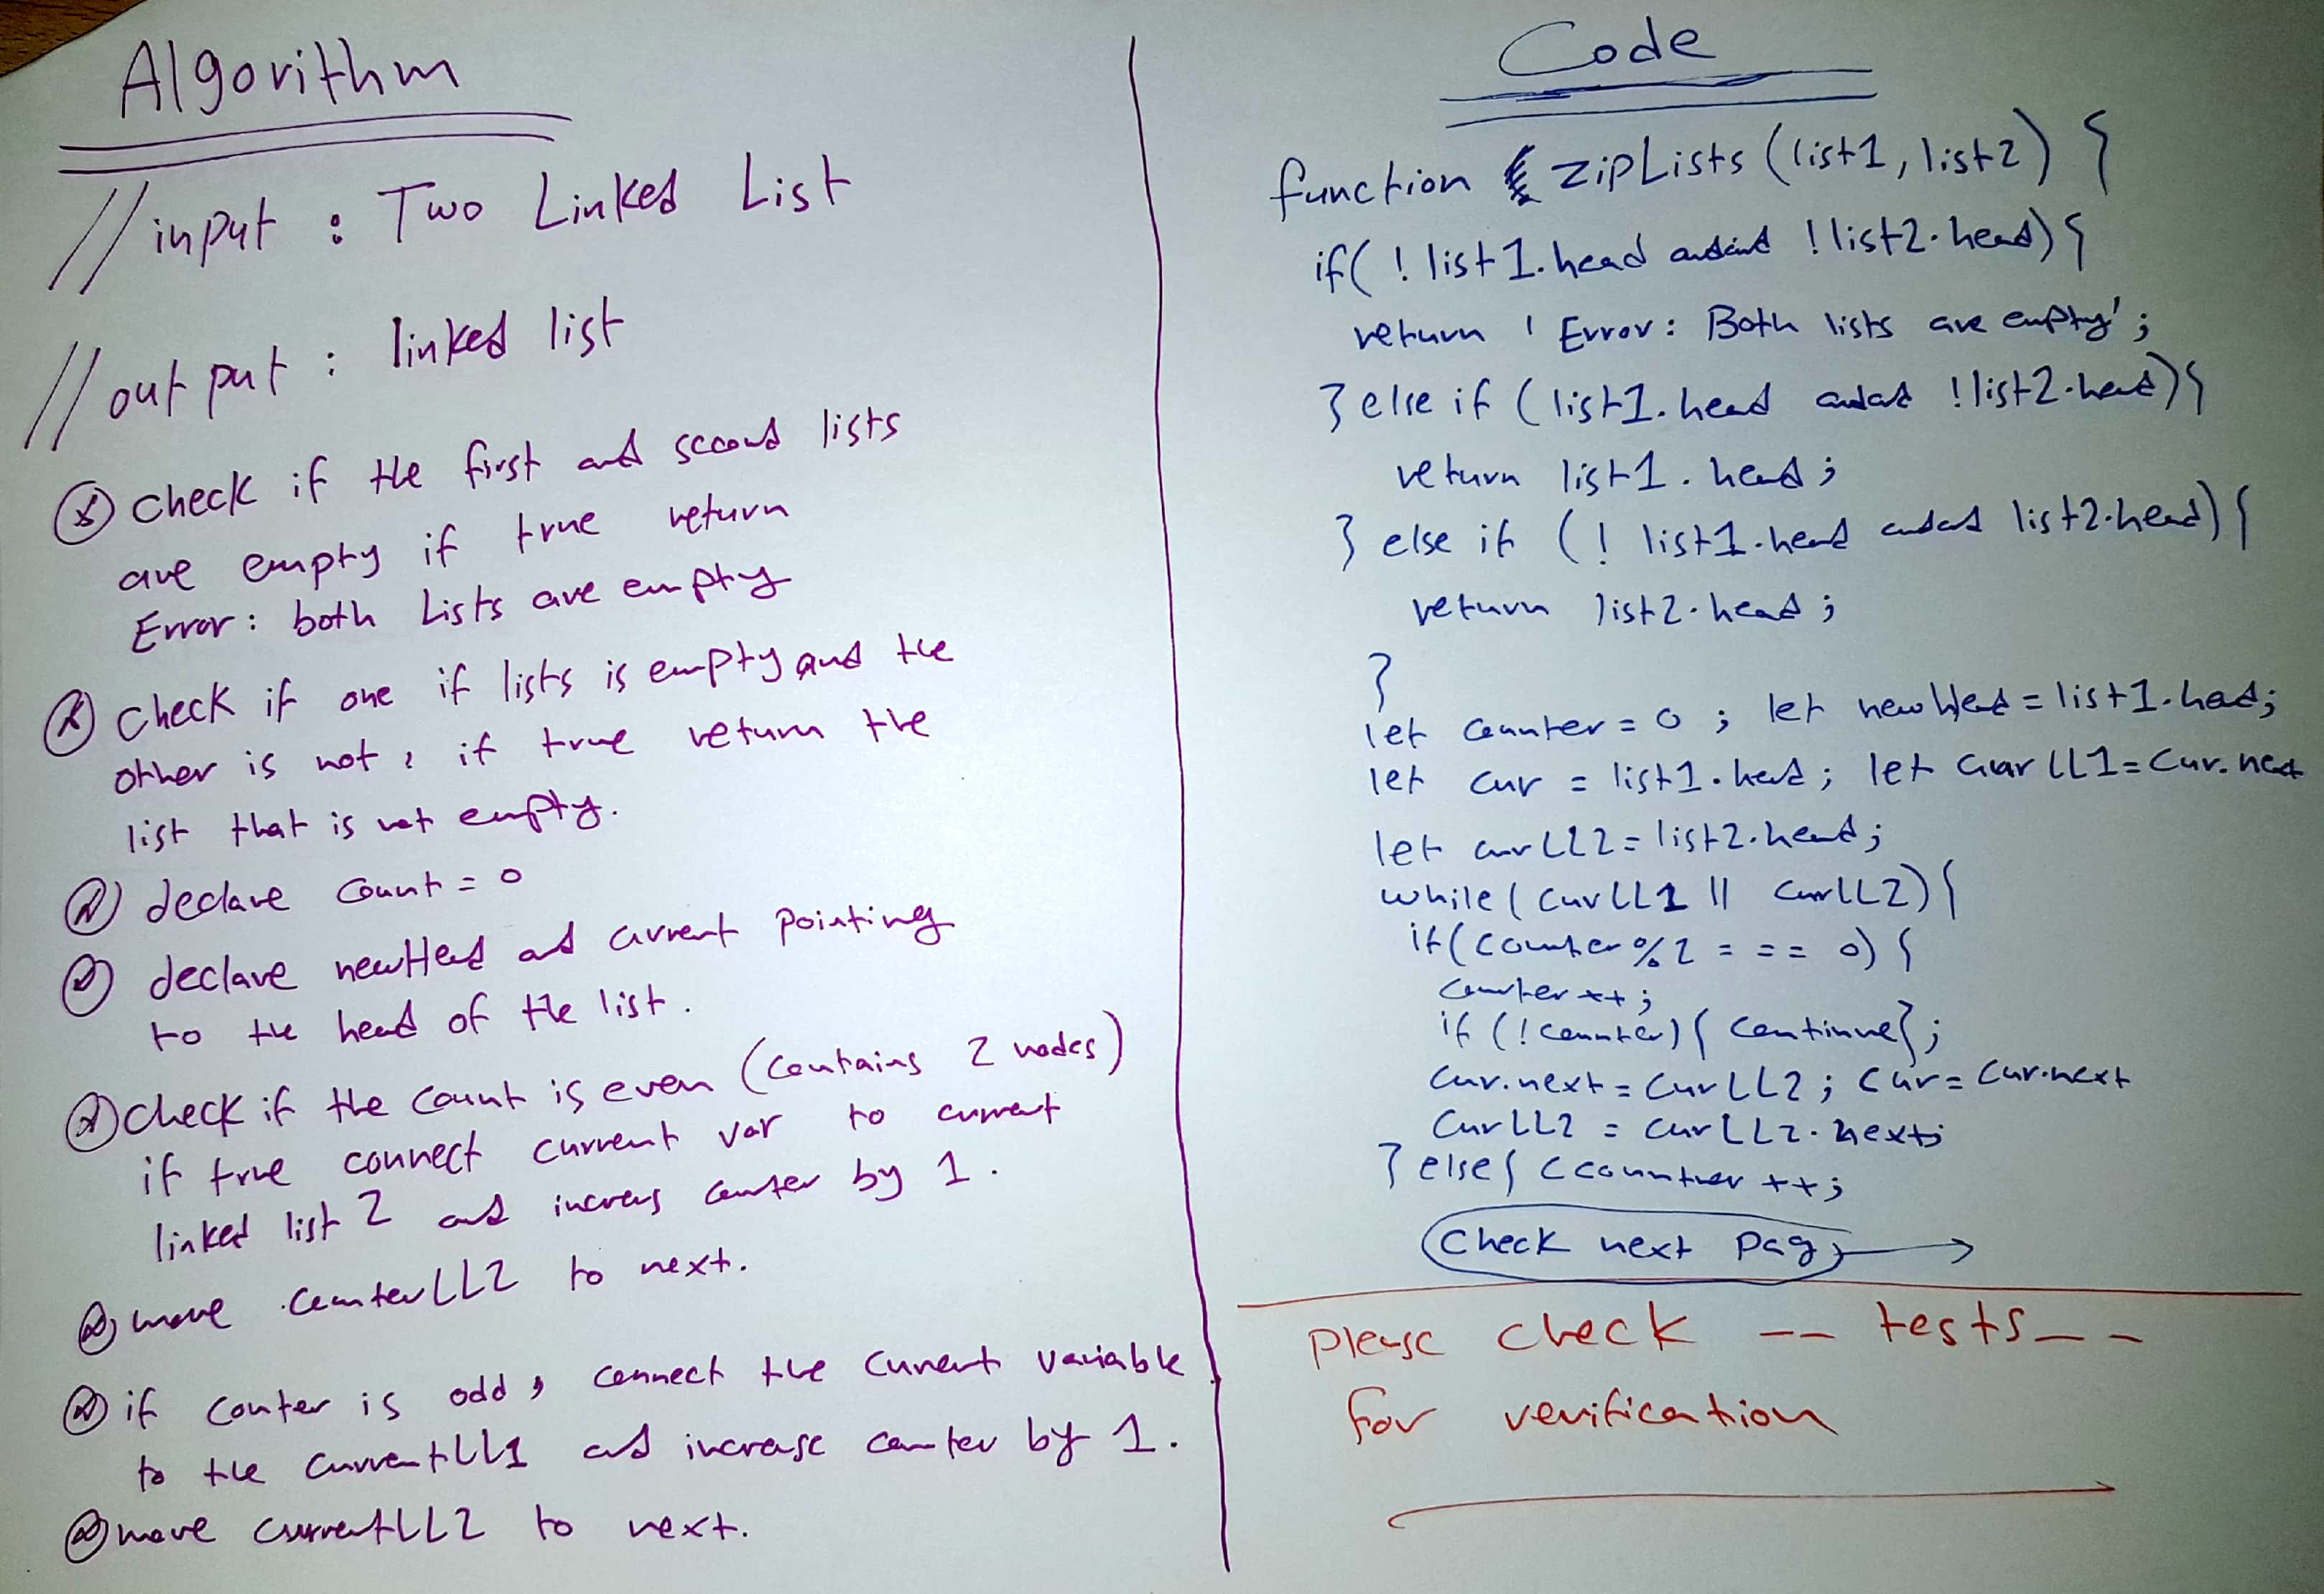 Algorithm
//input : Two Linked List
//output : linked list
check if the first and second lists
are empty if true return
Error : both Lists are empty
check if one if lists is empty and the
other is not, if true return the
list that is not empty.
declare count = 0
declare newHead and current pointing
to the head of the list.
check if the count is even (contains 2 nodes)
if true connect current var to current
linked list 2 and increas counter by 1.
move counterLL2 to next.
if conter is odd, connect the current variable
to the currentLL1 and increase counter by 1.
move currentLL2 to next.
Code
function zipLists (list1, list2) {
if( ! list1.head and !list2.head) {
return 'Error: Both lists are empty';
} else if (list1.head and !list2.head) {
return list1.head;
} else if (! list1.head and list2.head) {
return list2.head;
}
let counter = 0 ; let newHead = list1.head;
let cur = list1.head; let curLL1 = cur.next
let curLL2 = list2.head;
while (curLL1 || curLL2) {
if (counter % 2 === 0) {
counter ++;
if (!counter) { continue};
cur.next = curLL2; cur = cur.next
curLL2 = curLL2.next;
} else { counter ++;
Check next page
please check -- tests--
for verification